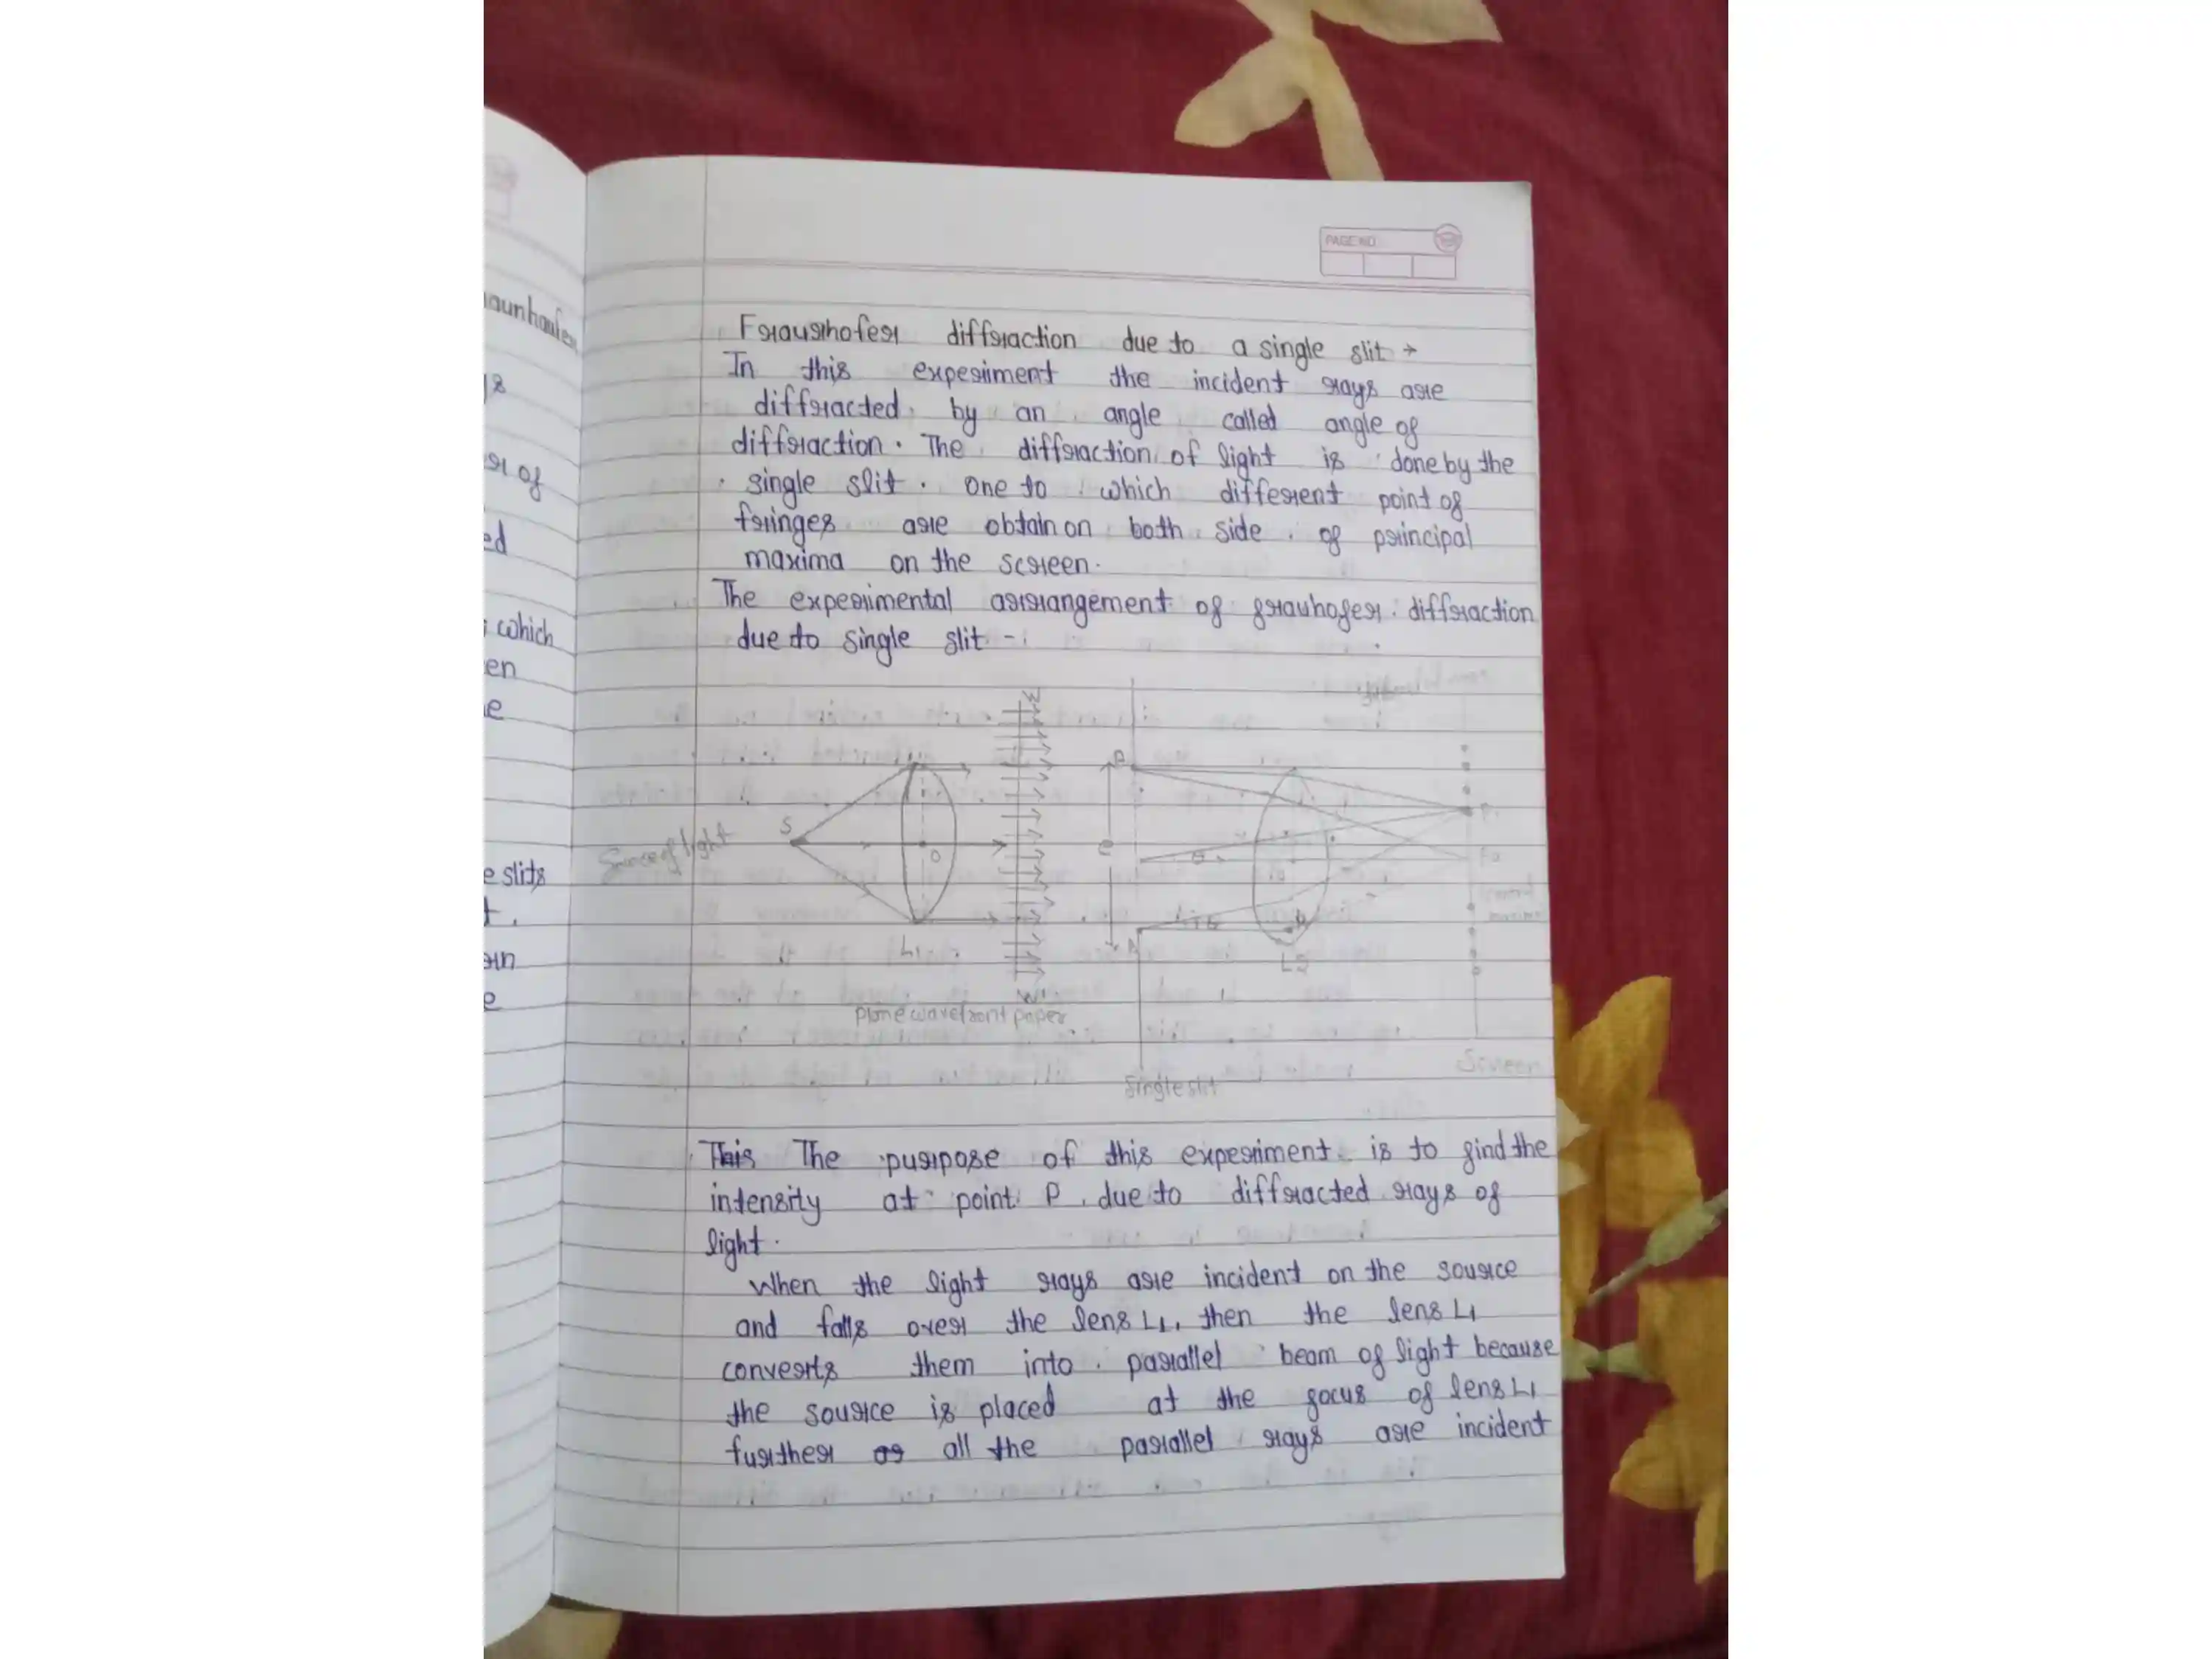 PAGE NO
aunhaufer
Fraurhofer diffraction due to a single slit →
In this experiment the incident rays are
diffracted by an angle called angle of
diffraction. The diffraction of light is done by the
single slit. one to which different point of
fringes are obtain on both side of principal
maxima on the screen.
The experimental arrangement of frauhofer diffraction
due to single slit -:
r of
ed
which
en
e
e slits
t.
rn
e
Source of light
S
O
L1
W'
Plane wavefront paper
B
e
θ
θ
A
L2
P
Po
Single slit
Screen
This The purpose of this experiment is to find the
intensity at point P due to diffracted rays of
light.
When the light rays are incident on the source
and falls over the lens L1, then the lens L1
converts them into parallel beam of light because
the source is placed at the focus of lens L1
further as all the parallel rays are incident